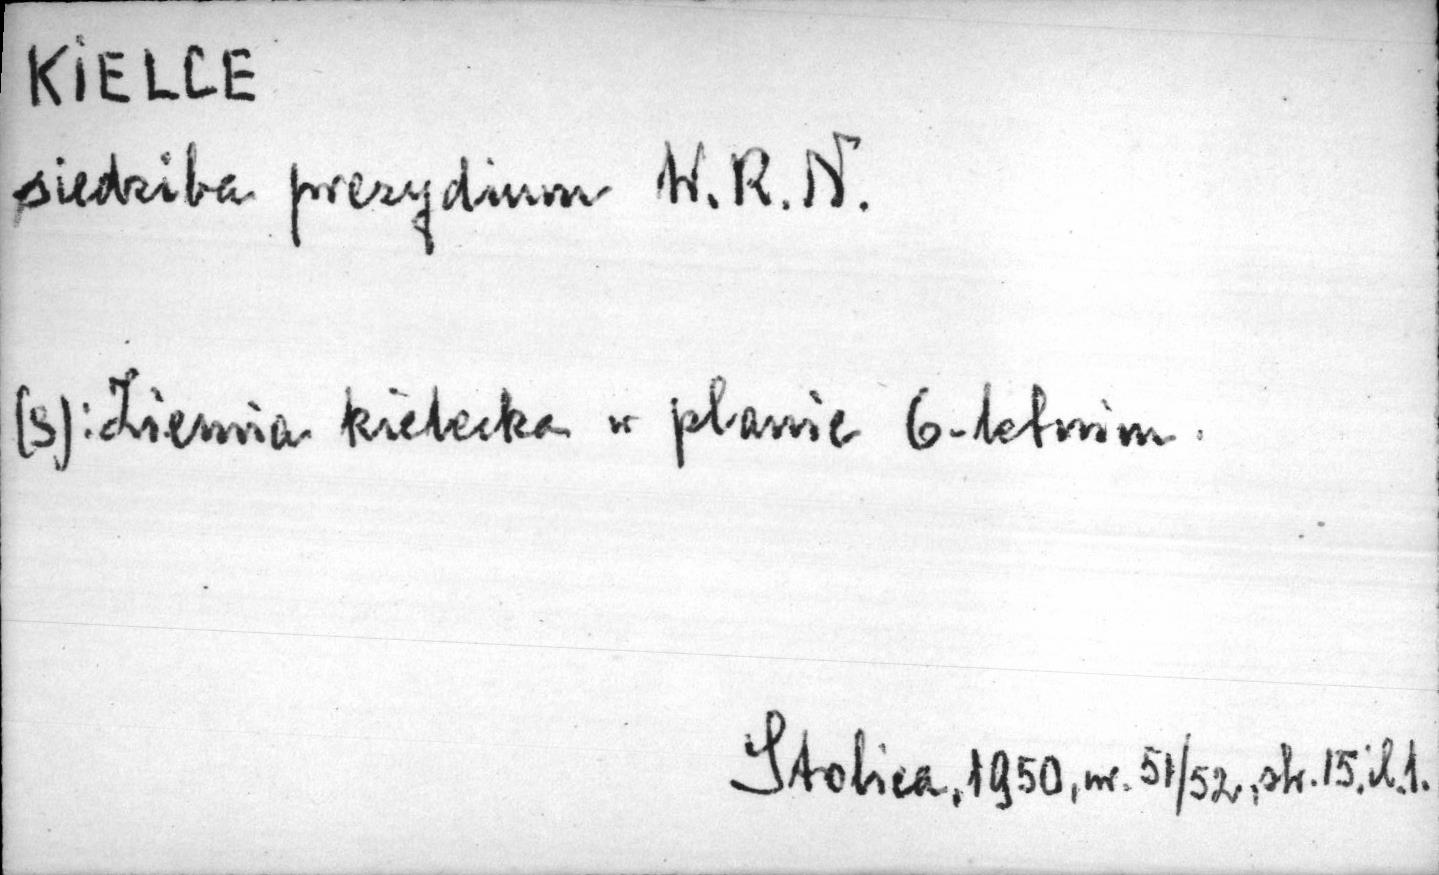 KIELCE
siedziba prezydium W.R.N.
(s): Ziemia kielecka w planie 6-letnim.
Stolica, 1950, nr. 51/52, str. 15, il. 1.